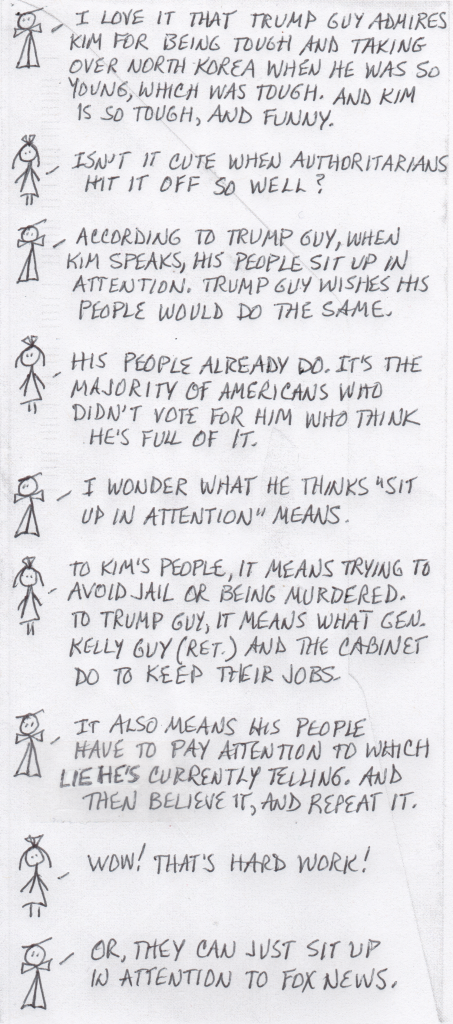 I LOVE IT THAT TRUMP GUY ADMIRES
KIM FOR BEING TOUGH AND TAKING
OVER NORTH KOREA WHEN HE WAS SO
YOUNG, WHICH WAS TOUGH. AND KIM
IS SO TOUGH, AND FUNNY.
ISN'T IT CUTE WHEN AUTHORITARIANS
HIT IT OFF SO WELL?
ACCORDING TO TRUMP GUY, WHEN
KIM SPEAKS, HIS PEOPLE SIT UP IN
ATTENTION. TRUMP GUY WISHES HIS
PEOPLE WOULD DO THE SAME.
HIS PEOPLE ALREADY DO. IT'S THE
MAJORITY OF AMERICANS WHO
DIDN'T VOTE FOR HIM WHO THINK
HE'S FULL OF IT.
I WONDER WHAT HE THINKS "SIT
UP IN ATTENTION" MEANS.
TO KIM'S PEOPLE, IT MEANS TRYING TO
AVOID JAIL OR BEING MURDERED.
TO TRUMP GUY, IT MEANS WHAT GEN.
KELLY GUY (RET.) AND THE CABINET
DO TO KEEP THEIR JOBS.
IT ALSO MEANS HIS PEOPLE
HAVE TO PAY ATTENTION TO WHICH
LIE HE'S CURRENTLY TELLING. AND
THEN BELIEVE IT, AND REPEAT IT.
WOW! THAT'S HARD WORK!
OR, THEY CAN JUST SIT UP
IN ATTENTION TO FOX NEWS.